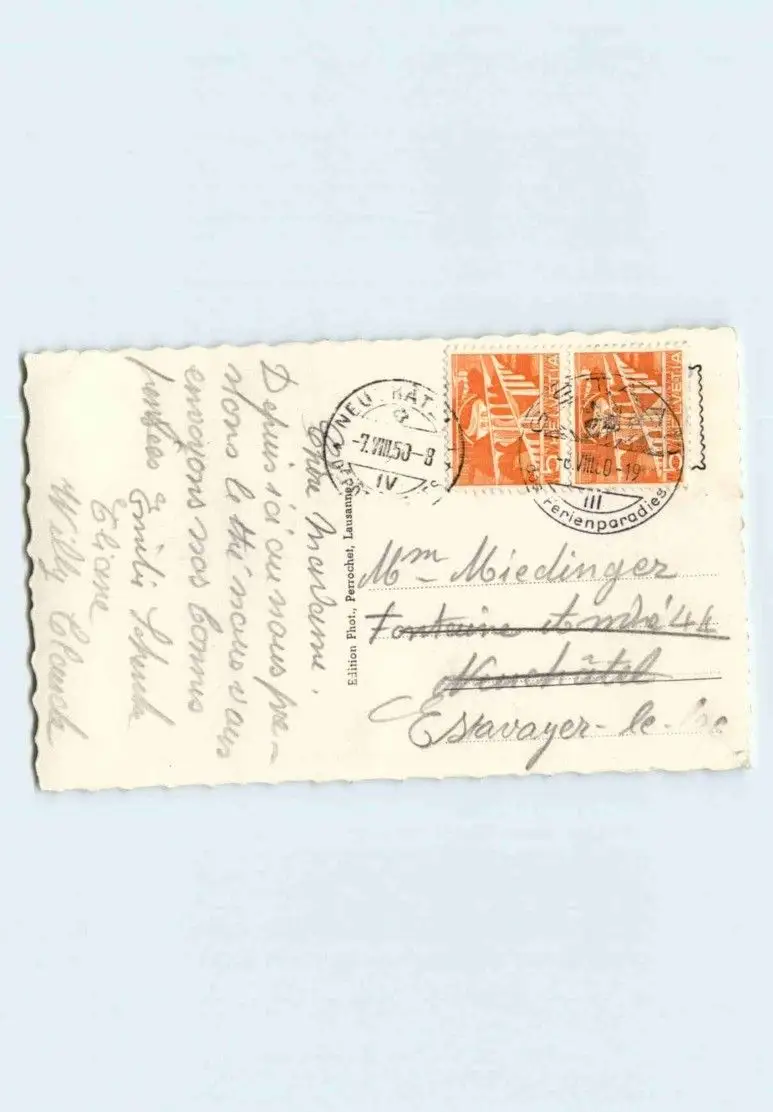 Chère Madame,
Depuis ici où nous pre-
nons le thé nous vous
envoyons nos bonnes
pensées
Emili
Eliane
Willy Claude
Edition Phot., Perrochet, Lausanne
NEU RAT
-7.VIII.50-8
IV
5 HELVETIA
5 HELVETIA
VIII.50-19
III
Ferienparadies
Mme Miedinger
Fontaine André 44
Neuchâtel
Estavayer-le-lac